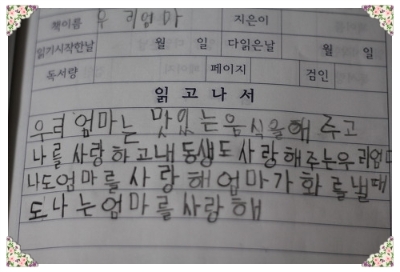 책이름 우리엄마 지은이
읽기시작한날 월 일 다읽은날 월 일
독서량 페이지 검인
읽고나서
우리 엄마는 맛있는 음식을해 주고
나를 사랑하고내 동생도 사랑해주는우리엄마
나도엄마를 사랑해 엄마가 화를낼때
도 나는엄마를 사랑해